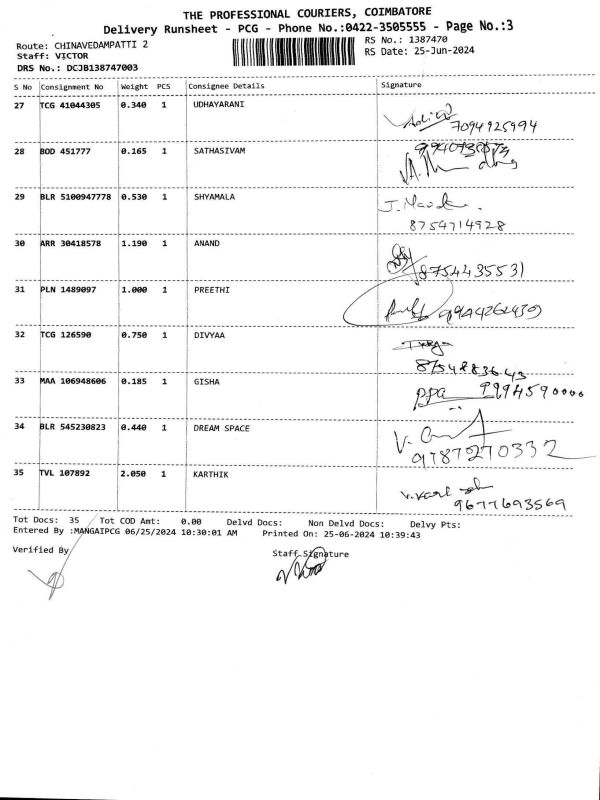 THE PROFESSIONAL COURIERS, COIMBATORE
Delivery Runsheet - PCG - Phone No.:0422-3505555 - Page No.:3
Route: CHINAVEDAMPATTI 2
RS No.: 1387470
Staff: VICTOR
RS Date: 25-Jun-2024
DRS No.: DCJB138747003
S No Consignment No Weight PCS Consignee Details Signature
27 TCG 41044305 0.340 1 UDHAYARANI
7094925994
28 BOD 451777 0.165 1 SATHASIVAM
29 BLR 5100947778 0.530 1 SHYAMALA
8754714928
30 ARR 30418578 1.190 1 ANAND
8754435531
31 PLN 1489097 1.000 1 PREETHI
32 TCG 126590 0.750 1 DIVYAA
33 MAA 106948606 0.185 1 GISHA
9994590000
34 BLR 545230823 0.440 1 DREAM SPACE
9787270332
35 TVL 107892 2.050 1 KARTHIK
9677693569
Tot Docs: 35 Tot COD Amt: 0.00 Delvd Docs: Non Delvd Docs: Delvy Pts:
Entered By :MANGAIPCG 06/25/2024 10:30:01 AM Printed On: 25-06-2024 10:39:43
Verified By Staff Signature